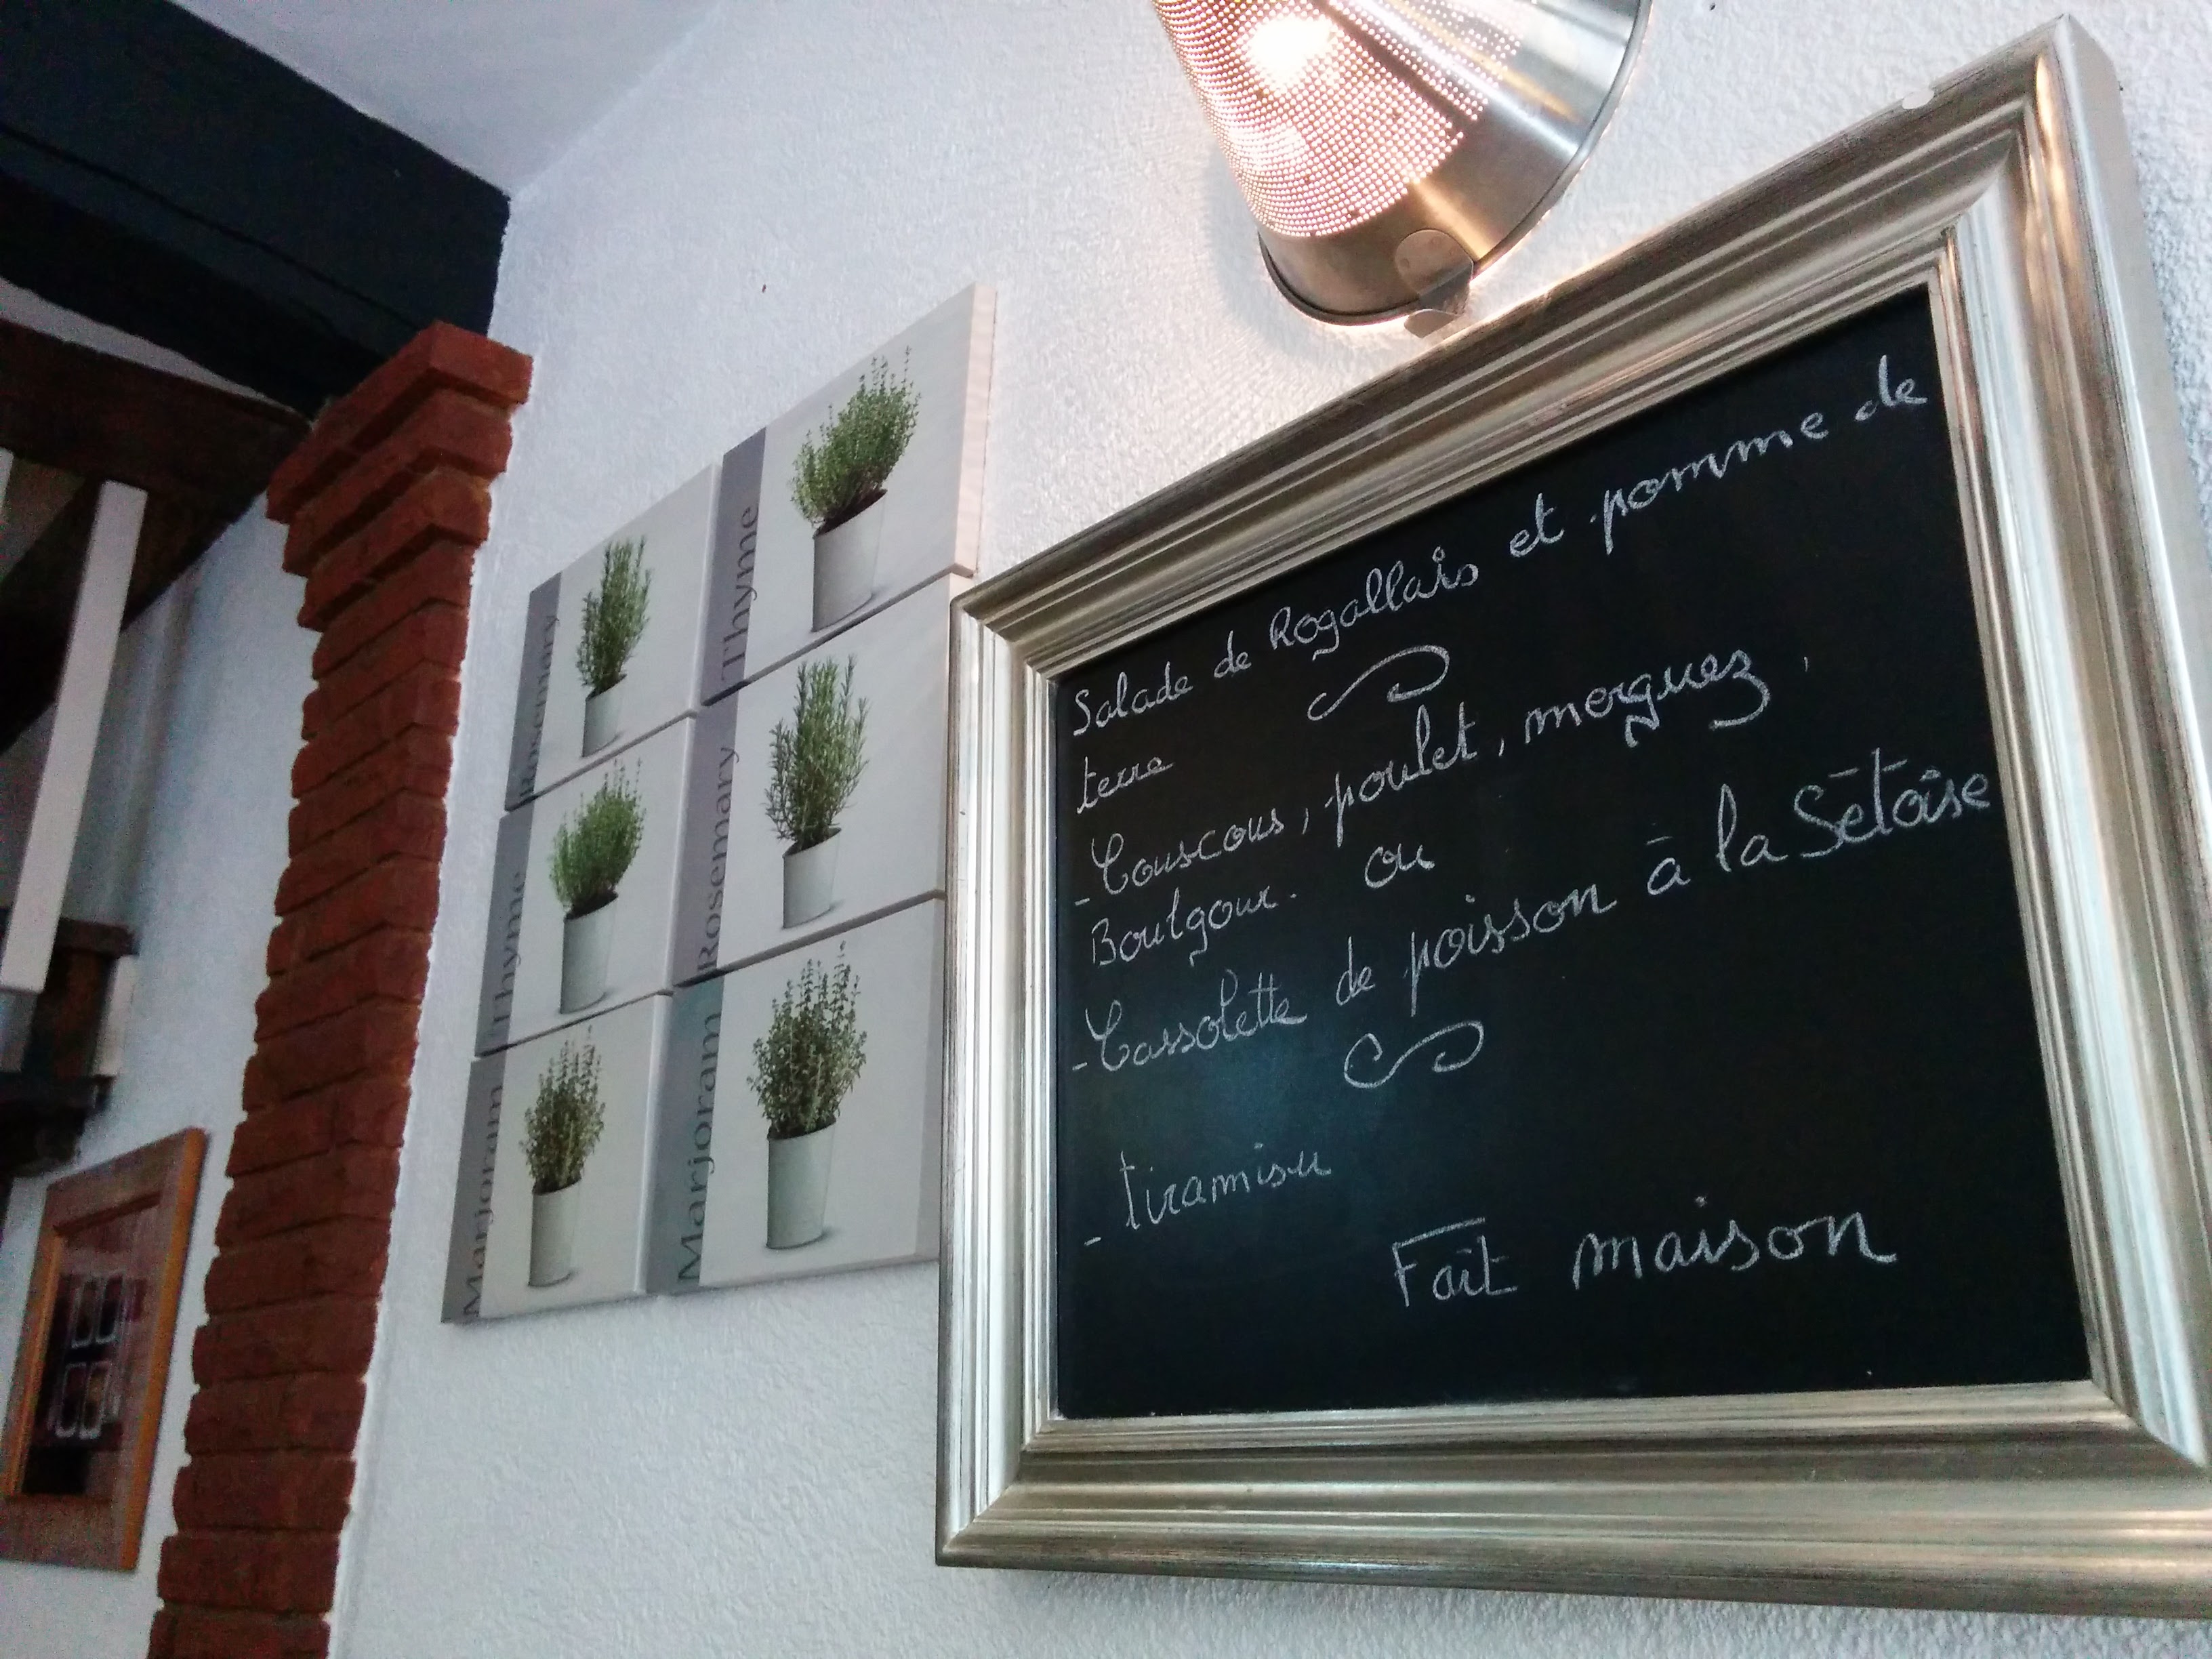 Rosemary
Thyme
Thyme
Rosemary
Marjoram
Marjoram
Salade de Rogallais et pomme de
terre
- Couscous, poulet, merguez,
Boulgour. ou
- Cassolette de poisson à la Sétoise
- tiramisu
Fait maison